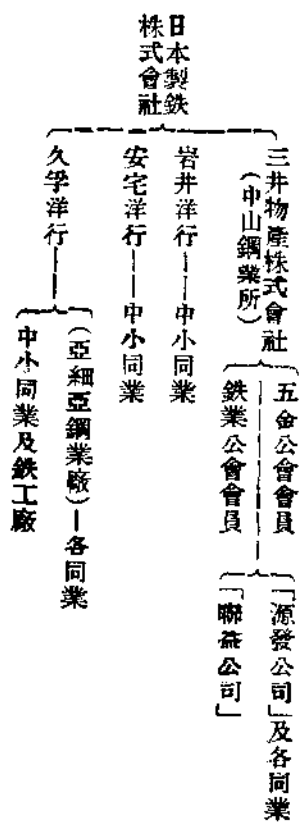 日本製鉄
株式會社
三井物產株式會社
(中山鋼業所)
五金公會會員
鉄業公會會員
「源發公司」及各同業
「聯益公司」
岩井洋行——中小同業
安宅洋行——中小同業
久孚洋行——
(亞細亞鋼業廠)—各同業
中小同業及鉄工廠